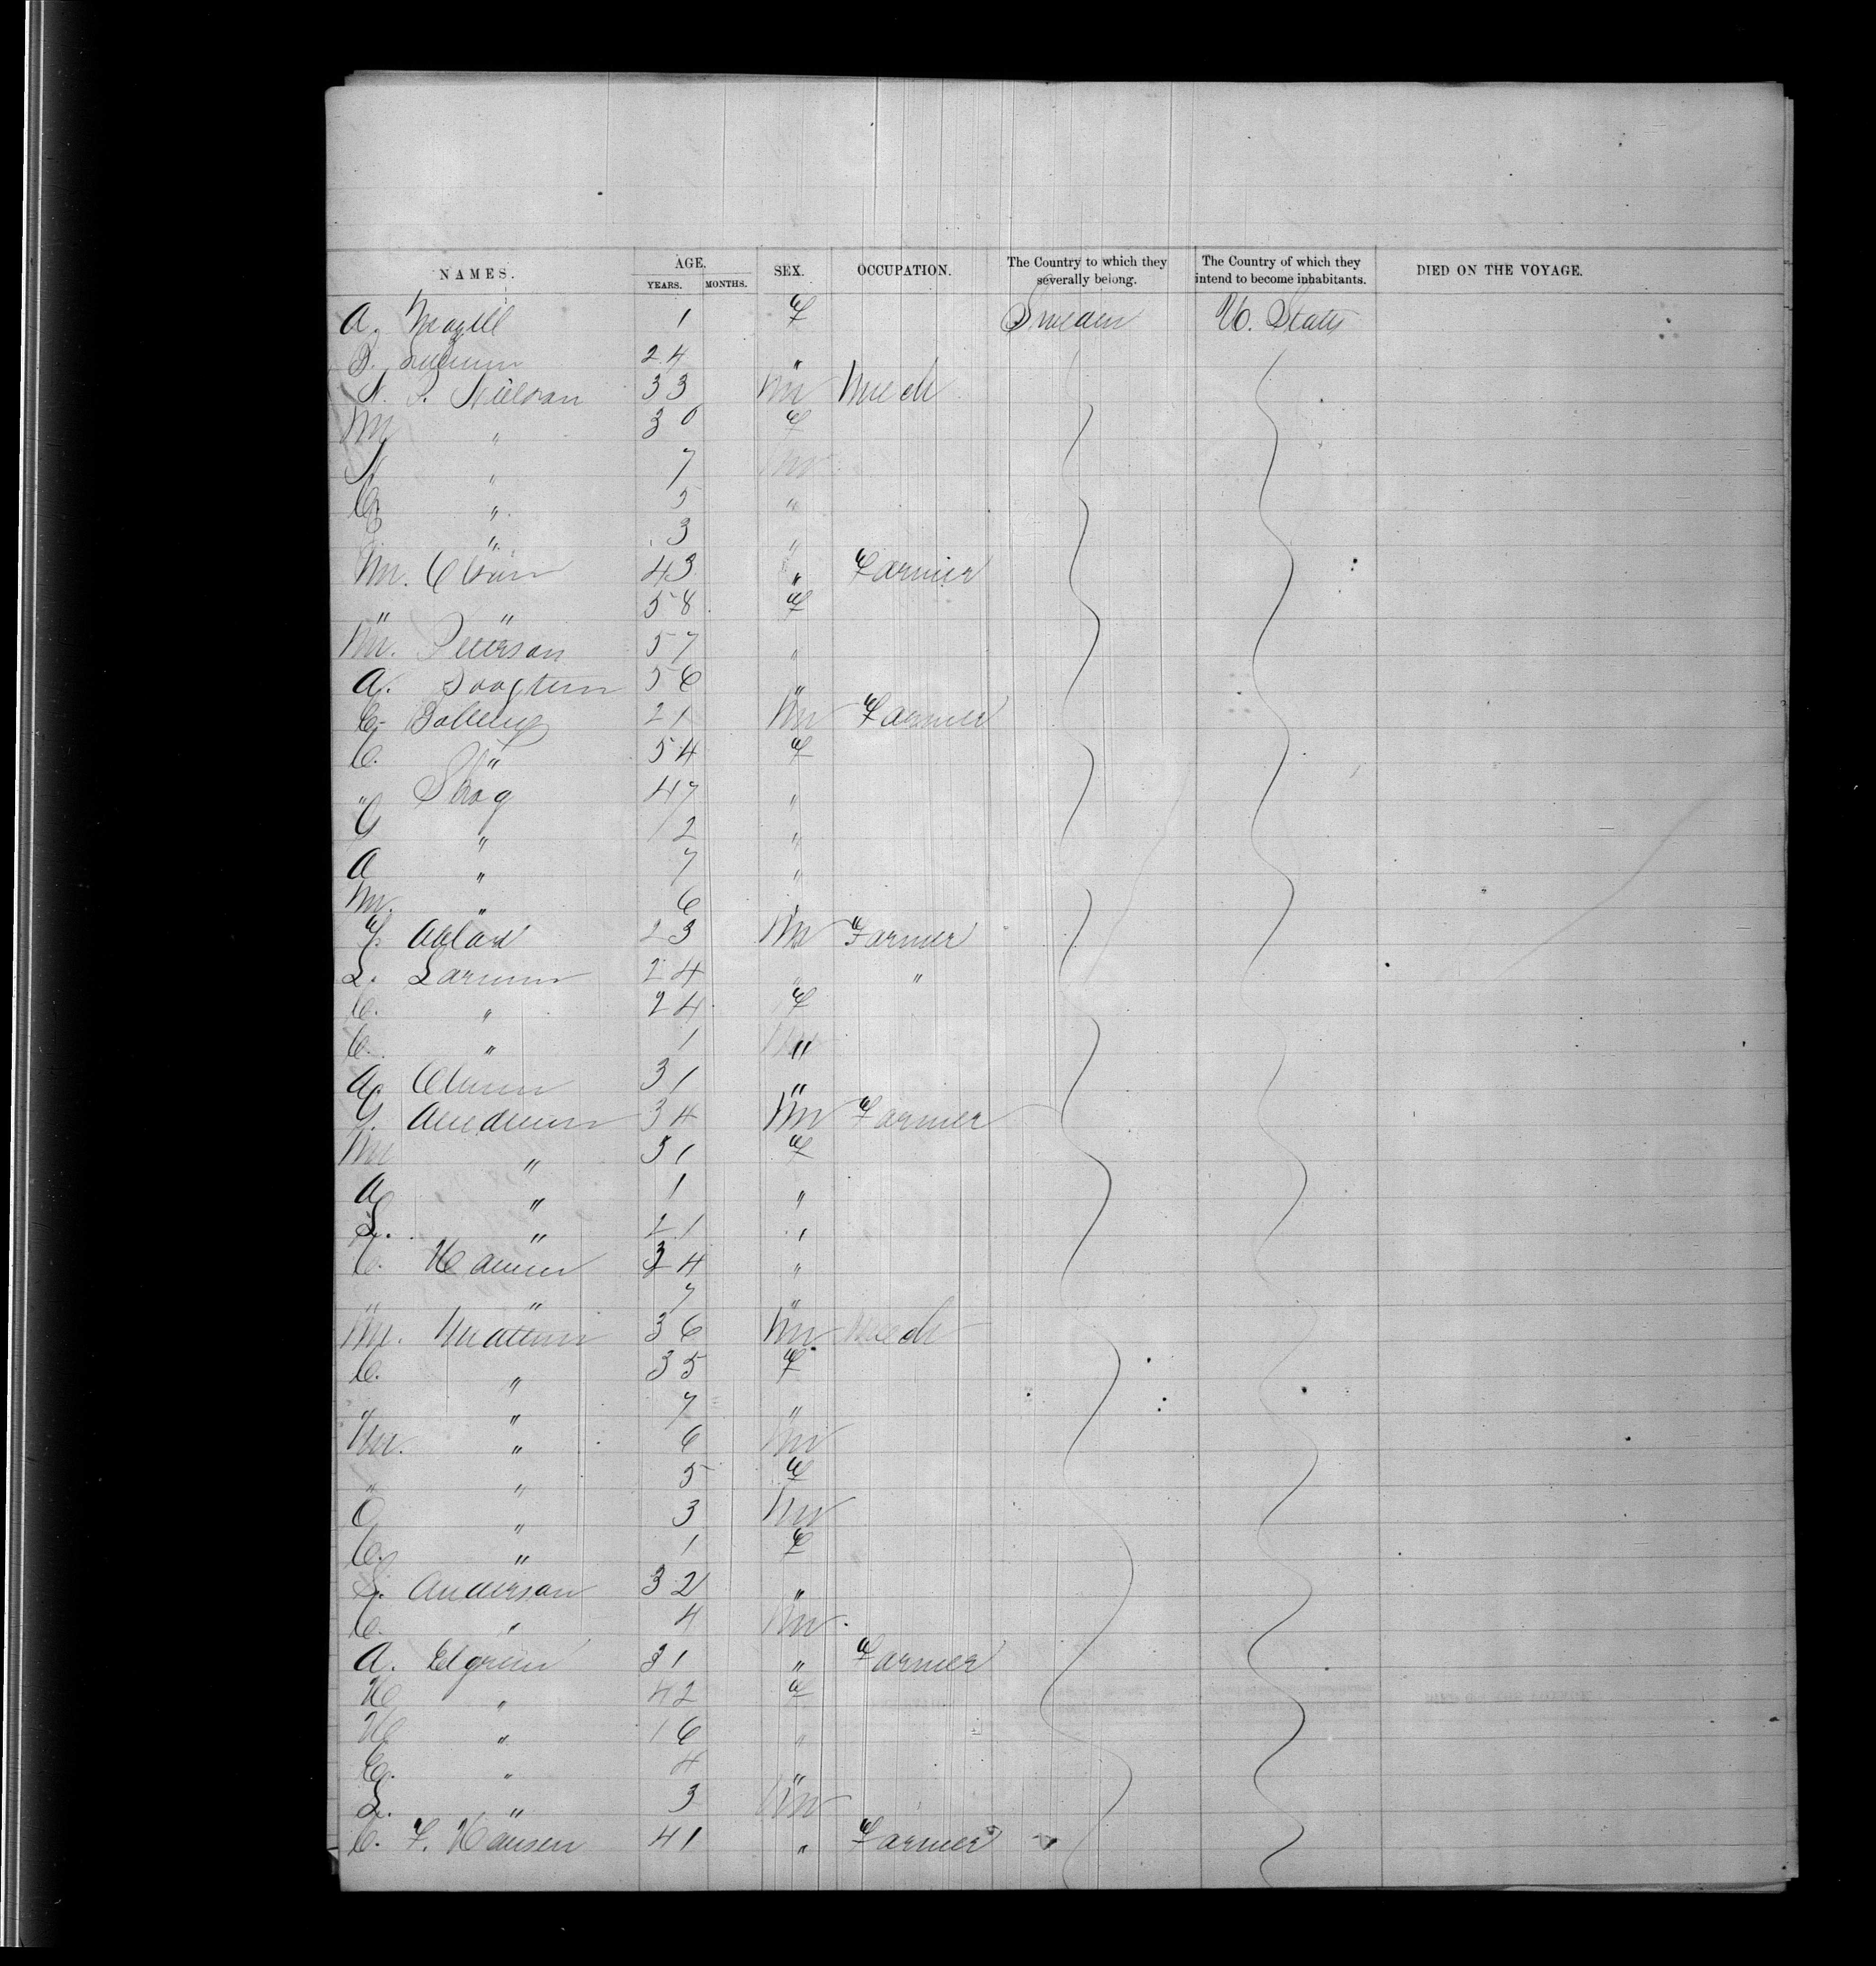 NAMES. AGE. YEARS. MONTHS. SEX. OCCUPATION. The Country to which they severally belong. The Country of which they intend to become inhabitants. DIED ON THE VOYAGE.
A. 1 F Sweden U. States
24 "
N. P. Nielson 33 M Mech
M " 30 F
N " 7 M
C " 5 "
" 3 "
M. 43 " Farmer
" " 58 F
M. Peterson 57 "
A. 56 "
C. 21 M Farmer
C. " 54 F
" Skog 47 "
G " 12 "
A " 7 "
M. " 6 "
F. 23 M Farmer
L. Larsen 24 " "
C. " 24 F
C. " 1 M
A. 31 "
G. 34 M Farmer
M " 31 F
A " 1 "
S. " 21 "
C. Hansen 34 "
" " 7 "
M. 36 M Mech
C. " 35 F
" " 7 "
M. " 6 M
" " 5 F
O " 3 M
C. " 1 F
S. Anderson 32 "
C. " 4 M
A. Elgren 31 " Farmer
H " 42 F
H " 16 "
E. " 4 "
L. " 3 M
C. F. Hansen 41 " Farmer